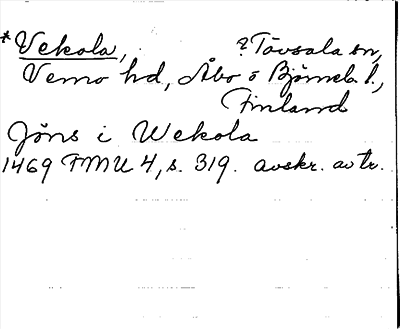 *Vekola, ? Tövsala sn,
Vemo hd, Åbo o Björneb. l.,
Finland
Jöns i Wekola
1469 FMU 4, s. 319. avskr. av tr.